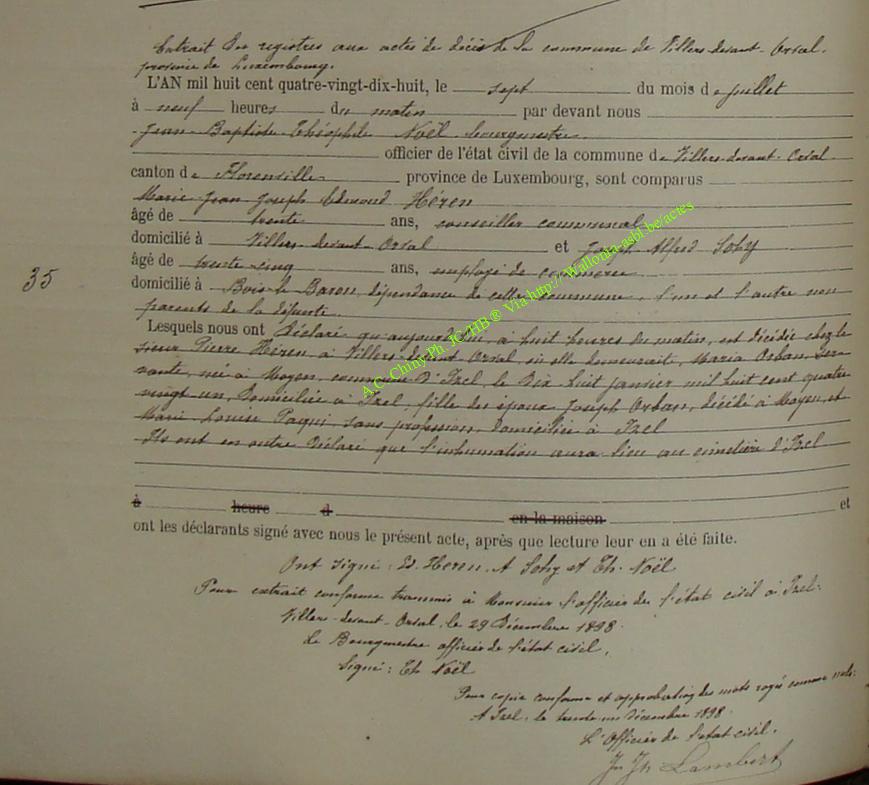 Extrait des registres aux actes de décès de la commune de Villers-devant-Orval.
province de Luxembourg.
L'AN mil huit cent quatre-vingt-dix-huit, le sept du mois de juillet
à neuf heures du matin par devant nous
Jean-Baptiste Théophile Noël bourgmestre
officier de l'état civil de la commune de Villers-devant-Orval
canton de Florenville province de Luxembourg, sont comparus
Marie Jean Joseph Edmond Héren
âgé de trente ans, conseiller communal
domicilié à Villers devant Orval et Joseph Alfred Sohy
âgé de trente-cinq ans, employé de commerce
35
domicilié à Bois-le-Baron, dépendance de cette commune, l'un et l'autre non
parents de la défunte.
Lesquels nous ont déclaré qu'aujourd'hui, à huit heures du matin, est décédée chez le
sieur Pierre Héren à Villers devant Orval, où elle demeurait, Maria Orban, ser-
vante, né à Moyen, commune d'Izel, le dix huit janvier mil huit cent quatre
vingt un, domiciliée à Izel, fille des époux Joseph Orban, décédé à Moyen, et
Marie Louise Paqui, sans profession, domiciliée à Izel
Ils ont en outre déclaré que l'inhumation aura lieu au cimetière d'Izel
à heure d en la maison et
ont les déclarants signé avec nous le présent acte, après que lecture leur en a été faite.
Ont signé: Ed. Heren, A Sohy et Th. Noël
Pour extrait conforme transmis à Monsieur l'officier de l'état civil à Izel.
Villers-devant-Orval, le 29 Décembre 1898.
Le Bourgmestre officier de l'état civil,
Signé: Th Noël
Pour copie conforme et approbation des mots rayés comme nuls.
A Izel, le trente un Décembre 1898.
L'Officier de l'état civil.
Jn Jh Lambert
A.C. Chiny Ph. JC/HB ® Via http://Wallonia-asbl.be/actes